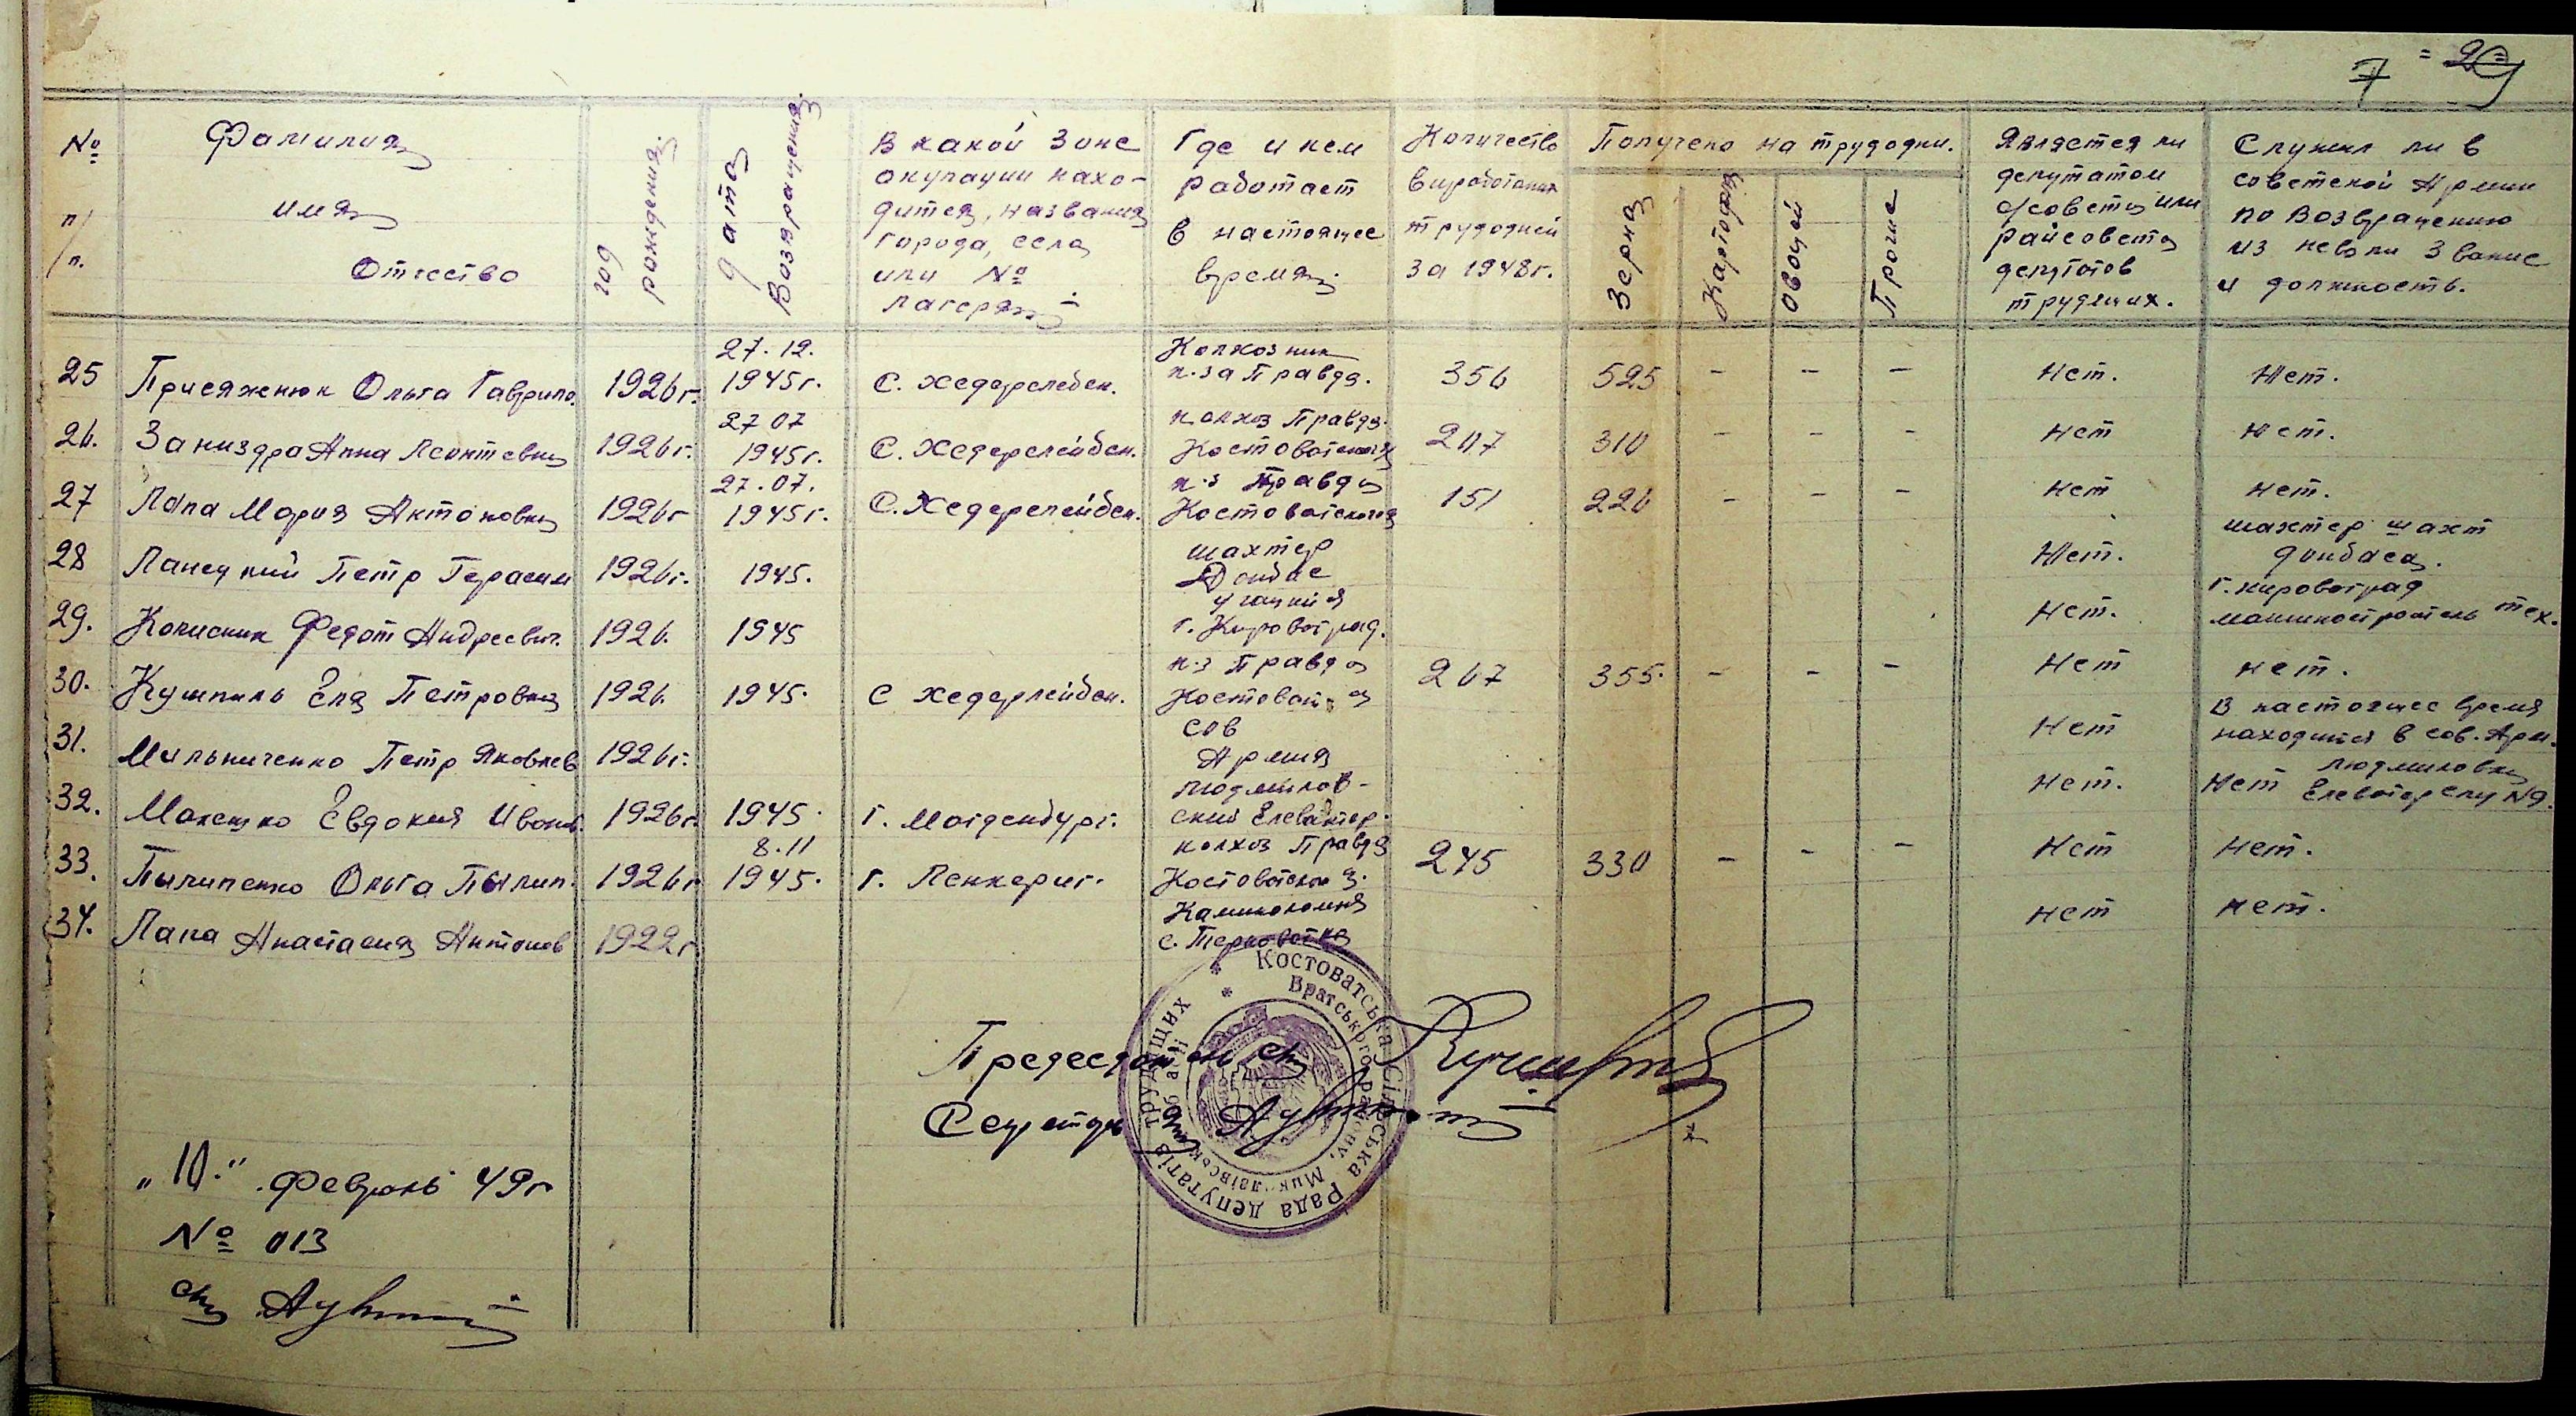 7 = 29
№ п/п.
Фамилия имя Отчество
год рождения
дата возвращения
В какой зоне окупации нахо-
дится, названия
города, села
или №
лагеря
Где и кем
работает
в настоящее
время.
Количество
выработаных
трудодней
за 1948г.
Получено на трудодни.
Зерна
Картофля
Овощей
Прочие
Является ли
депутатом
с/совета или
райсовета
депутатов
трудящих.
Служил ли в
советской Армии
по возвращению
из неволи звание
и должность.
25 Присяжнюк Ольга Гаврило. 1926г. 27.12. 1945г. С. Хедерслебен. Колхозник к-за Правда. 356 525 - - - Нет. Нет.
26. Заниздра Анна Леонтевна 1926г. 27 07 1945г. С. Хедерелейбен. колхоз Правда. Костоватская 207 310 - - - нет нет.
27 Лапа Мария Антоновна 1926г 27.07. 1945г. С. Хедерелейбен. к-з Правда Костоватская 151 226 - - - нет нет.
28 Ланецкий Петр Герасим 1926г. 1945. шахтер Донбас Нет. шахтер шахт донбаса.
29. Колисник Федот Андреевич. 1926. 1945 г. Кировоград. Нет. г. кировоград машиностроитель тех.
30. Кушниль Еля Петровна 1926. 1945. С хедерлейбен. к-з Правда 267 355. - - - Нет нет.
31. Мильниченко Петр Яковлев 1926г. Сов Армия Нет В настоящее время находится в сов. Арм.
32. Евдокия Иванов. 1926г. 1945. г. Магденбург. Людмилов-ский Елеватор. Нет. Нет Людмиловка
33. Пылипенко Ольга Пылип. 1926г 8.11 1945. г. Ленкериг. колхоз Правда Костоватская 245 330 - - - Нет нет.
34. Лапа Анастасия Антонов 1922г с. Терноватка нет нет.
Председатель с/с
Секретарь
Костоватська Сільська рада депутатів трудящих
Братського району, Миколаївської області
„10." февраль 49г
№ 013